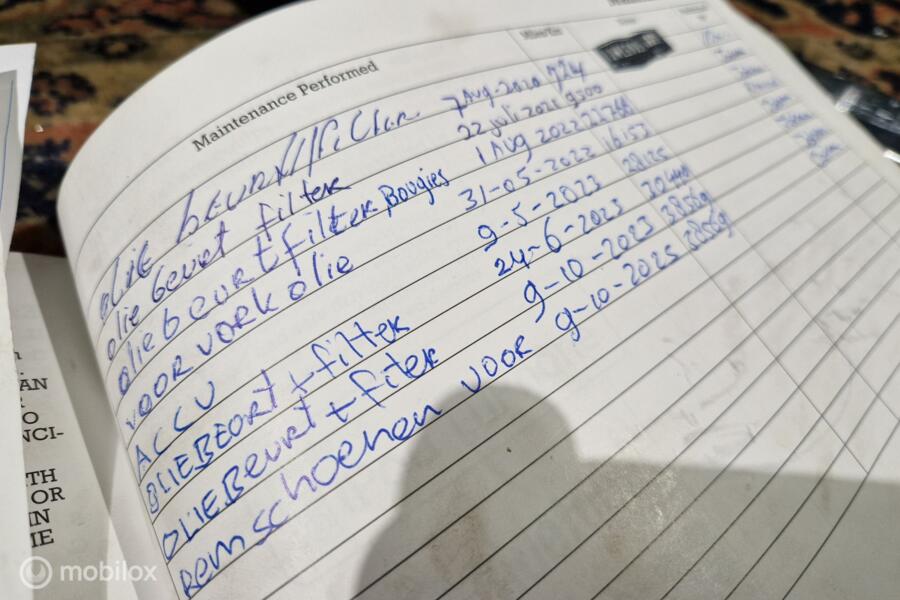 Maintenance Performed
olie beurt/filter 7 Aug-2020 724
olie beurt filter 22 juli 2021 9300
oliebeurt filter, Bougies 1 Aug 2022
voorvork olie 31-05-2022 16153
ACCU 9-5-2023
OLIEBEORT + filter 24-6-2023
OLIEBEURT + fiter 9-10-2023 38569
Remschoenen voor 9-10-2025 38569
AN
O
NCI-
TH
OR
IN
IE
mobilox